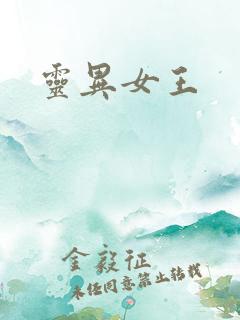 靈異女王
金毅征
未经同意禁止转载